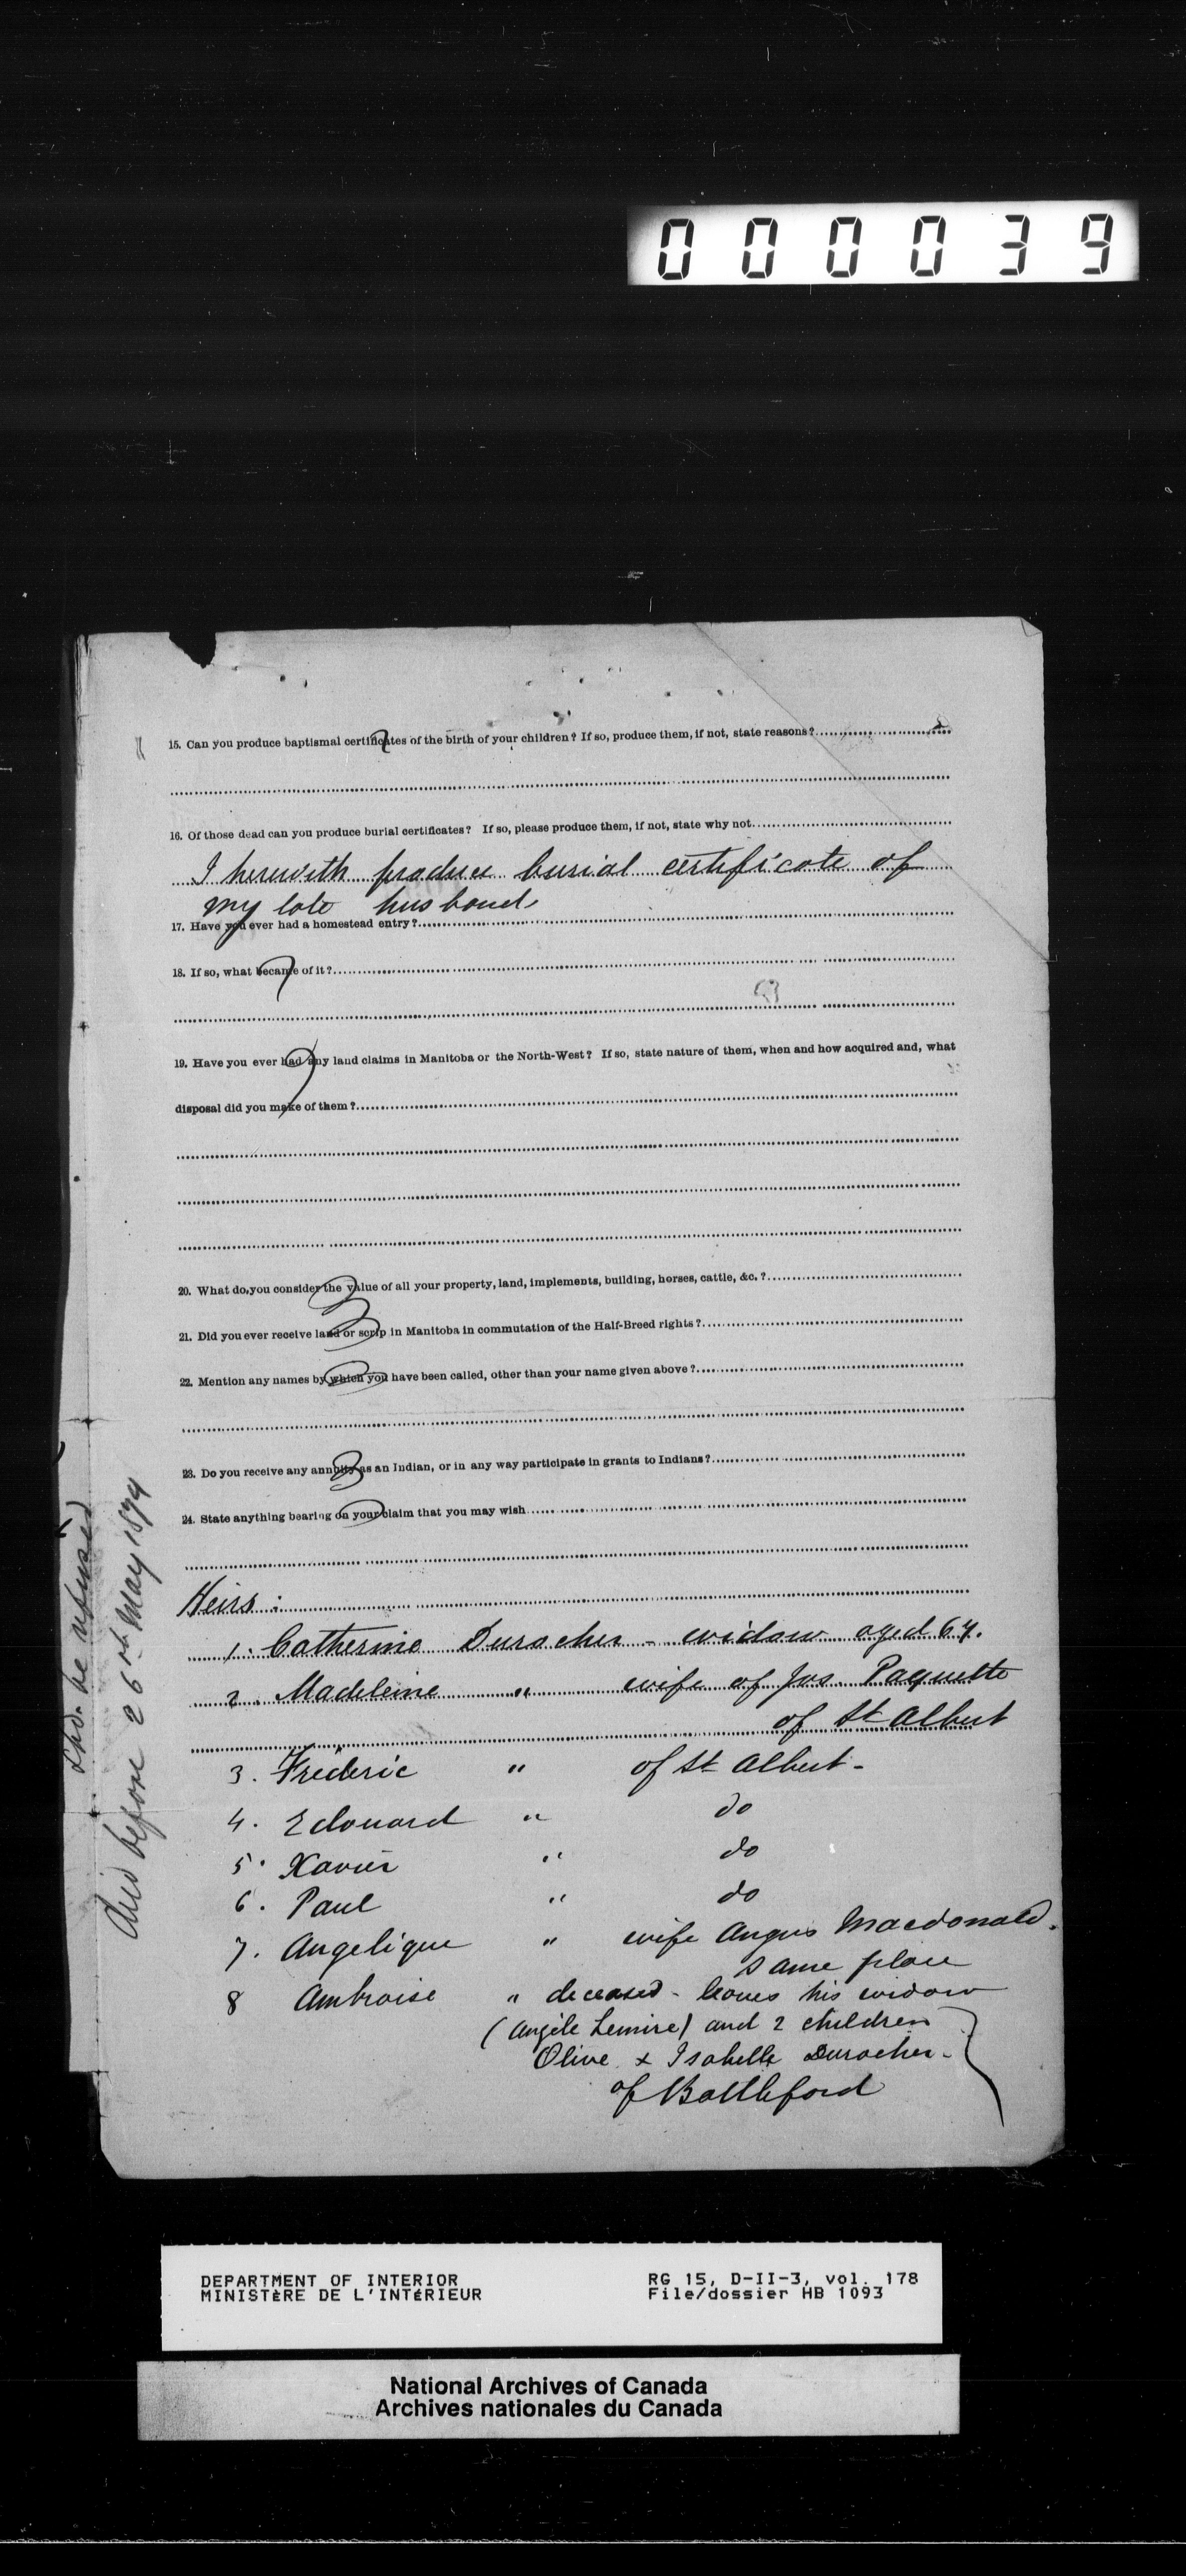 000039
15. Can you produce baptismal certificates of the birth of your children? If so, produce them, if not, state reasons?
16. Of those dead can you produce burial certificates? If so, please produce them, if not, state why not
I herewith produce burial certificate of
my late husband
17. Have you ever had a homestead entry?
18. If so, what became of it?
19. Have you ever had any land claims in Manitoba or the North-West? If so, state nature of them, when and how acquired and, what
disposal did you make of them?
20. What do you consider the value of all your property, land, implements, building, horses, cattle, &c.?
21. Did you ever receive land or scrip in Manitoba in commutation of the Half-Breed rights?
22. Mention any names by which you have been called, other than your name given above?
23. Do you receive any annuity as an Indian, or in any way participate in grants to Indians?
24. State anything bearing on your claim that you may wish
Heirs:
1. Catherine Durocher - widow aged 67.
2. Madeleine " wife of Jos. Paquette
of St Albert
3. Frederic " of St Albert -
4. Edouard " do
5. Xavier " do
6. Paul " do
7. Angelique " wife Angus Macdonald.
same place
8 Ambroise " deceased - leaves his widow
(Angèle Lemire) and 2 children
Olive & Isabelle Durocher -
of Battleford
Shd. be refused
Died before 26th May 1874
DEPARTMENT OF INTERIOR
MINISTÈRE DE L'INTÉRIEUR
RG 15, D-II-3, vol. 178
File/dossier HB 1093
National Archives of Canada
Archives nationales du Canada